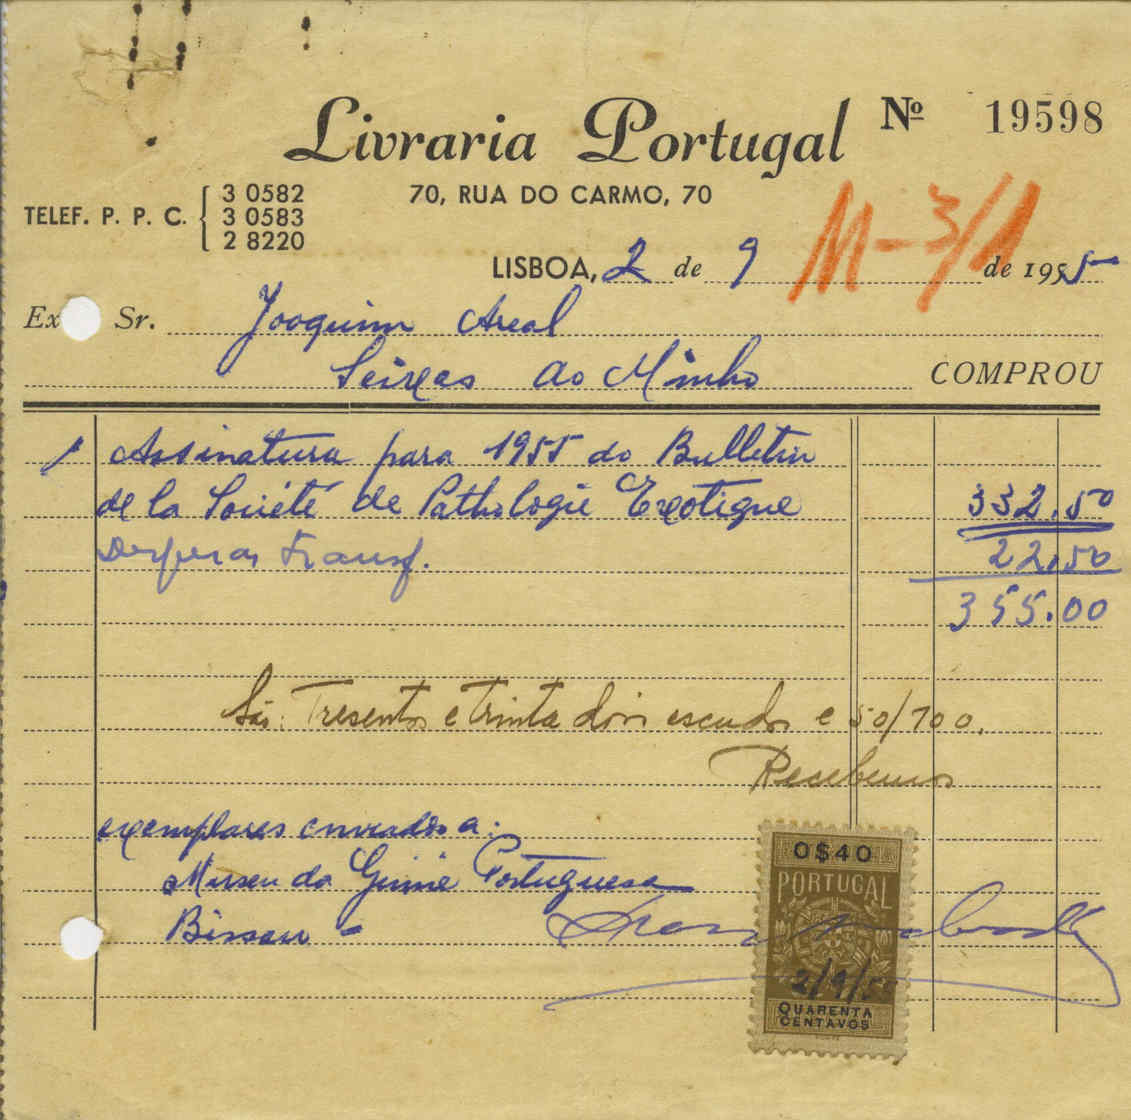 Livraria Portugal Nº 19598
70, RUA DO CARMO, 70
TELEF. P. P. C. 3 0582
3 0583
2 8220
M-3/1
LISBOA, 2 de 9 de 1955
Ex Sr. Joaquim Areal
Seixas ao Minho COMPROU
1 Assinatura para 1955 do Bulletin
de la Société de Pathologie Exotique 332.50
Despesas transf. 22,50
355.00
São: Tresentos e trinta dois escudos e 50/100.
Recebemos
exemplares enviados a:
Museu da Guiné Portuguesa
Bissau
0$40
PORTUGAL
2/9/55
QUARENTA
CENTAVOS